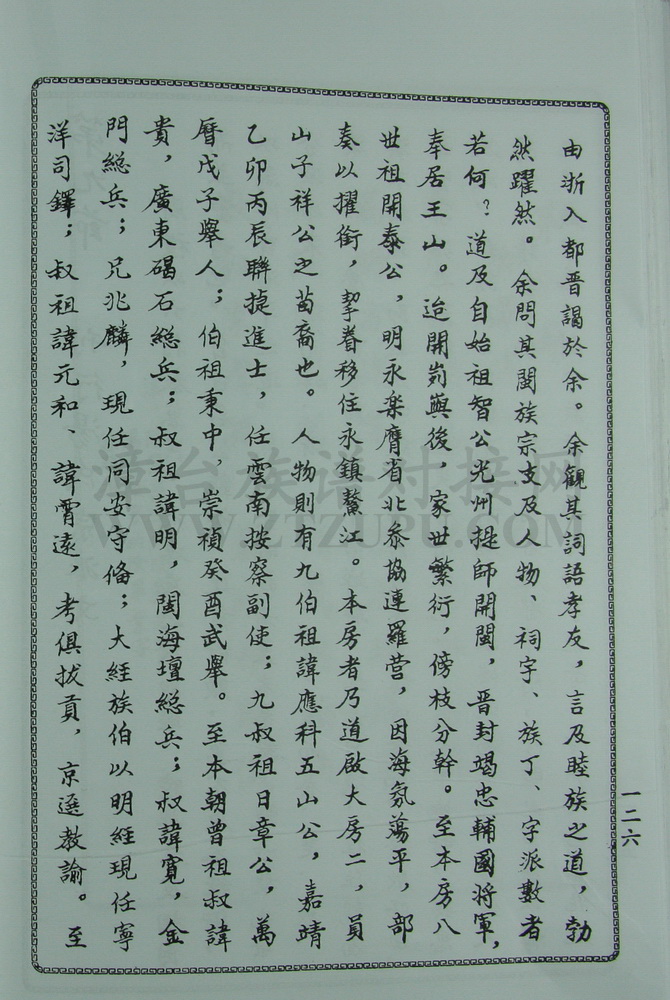 由浙入都晋謁於余。余觀其詞語孝友，言及睦族之道，勃
然躍然。余問其閩族宗支及人物、祠宇、族丁、字派數者
若何？道及自始祖智公光州提師開閩，晋封竭忠輔國将軍，
奉居王山。迨開前與後，家世繁衍，傍枝分幹。至本房八
世祖開泰公，明永楽膺省北叅協連羅营，因海氛蕩平，部
奏以擢銜，挈眷移住永鎮鰲江。本房者乃道啟大房二，員
山子祥公之苗裔也。人物則有九伯祖諱應科五山公，嘉靖
乙卯丙辰聯捷進士，任雲南按察副使；九叔祖日章公，萬
曆戊子舉人；伯祖秉中，崇禎癸酉武舉。至本朝曾祖叔諱
貴，廣東碣石総兵；叔祖諱明，閩海壇総兵；叔諱寛，金
門総兵；兄兆麟，現任同安守俻；大経族伯以明經現任寧
洋司鐸；叔祖諱元和、諱霄遠，考俱拔貢，京選教諭。至
一二六
津台族谱对接网
WWW.ZTZUPU.COM